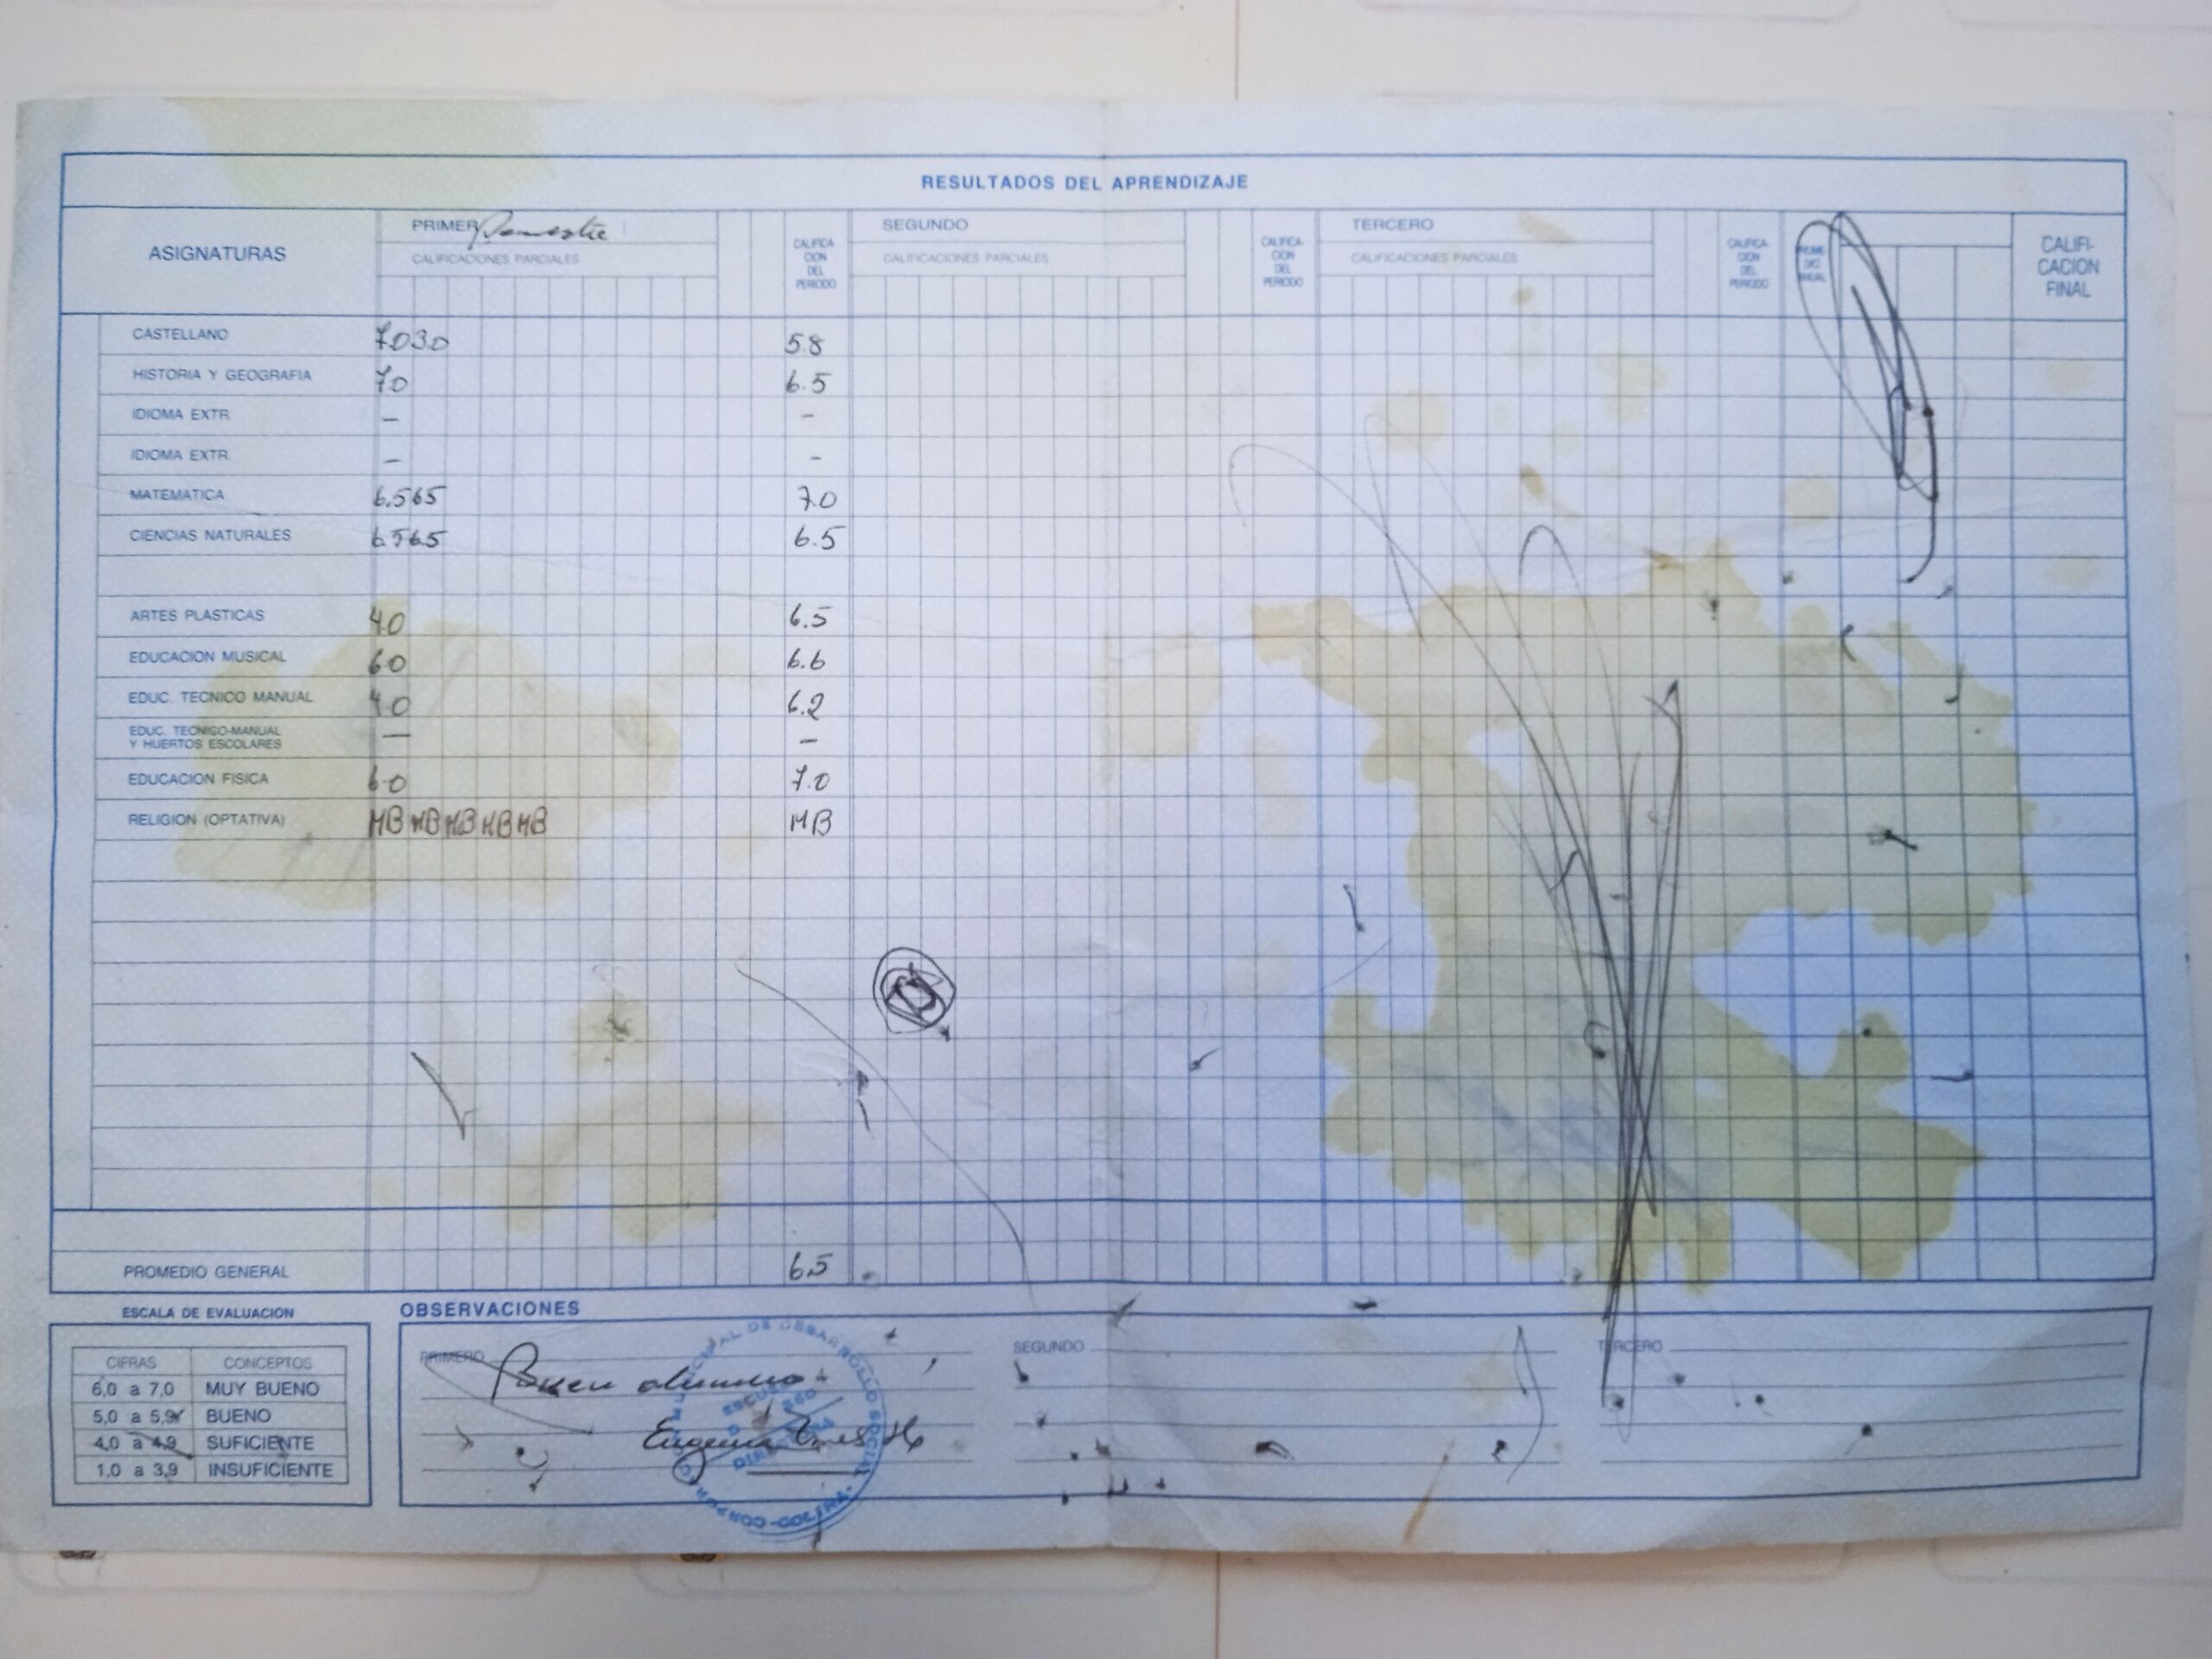 RESULTADOS DEL APRENDIZAJE
ASIGNATURAS
PRIMER Semestre
CALIFICACIONES PARCIALES
CALIFICA-
CION
DEL
PERIODO
SEGUNDO
CALIFICACIONES PARCIALES
CALIFICA-
CION
DEL
PERIODO
TERCERO
CALIFICACIONES PARCIALES
CALIFICA-
CION
DEL
PERIODO
PROME-
DIO
ANUAL
CALIFI-
CACION
FINAL
CASTELLANO 7030 5.8
HISTORIA Y GEOGRAFIA 70 6.5
IDIOMA EXTR. – –
IDIOMA EXTR. – –
MATEMATICA 6.565 7.0
CIENCIAS NATURALES 6.565 6.5
ARTES PLASTICAS 40 6.5
EDUCACION MUSICAL 60 6.6
EDUC. TECNICO MANUAL 40 6.2
EDUC. TECNICO-MANUAL
Y HUERTOS ESCOLARES — –
EDUCACION FISICA 60 7.0
RELIGION (OPTATIVA) MB MB MB MB MB MB
PROMEDIO GENERAL 6.5
ESCALA DE EVALUACION
CIFRAS CONCEPTOS
6,0 a 7,0 MUY BUENO
5,0 a 5,9 BUENO
4,0 a 4,9 SUFICIENTE
1,0 a 3,9 INSUFICIENTE
OBSERVACIONES
PRIMERO
Buen alumno
Eugenia
DE DESARROLLO SOCIAL
COLTRA
SEGUNDO
TERCERO